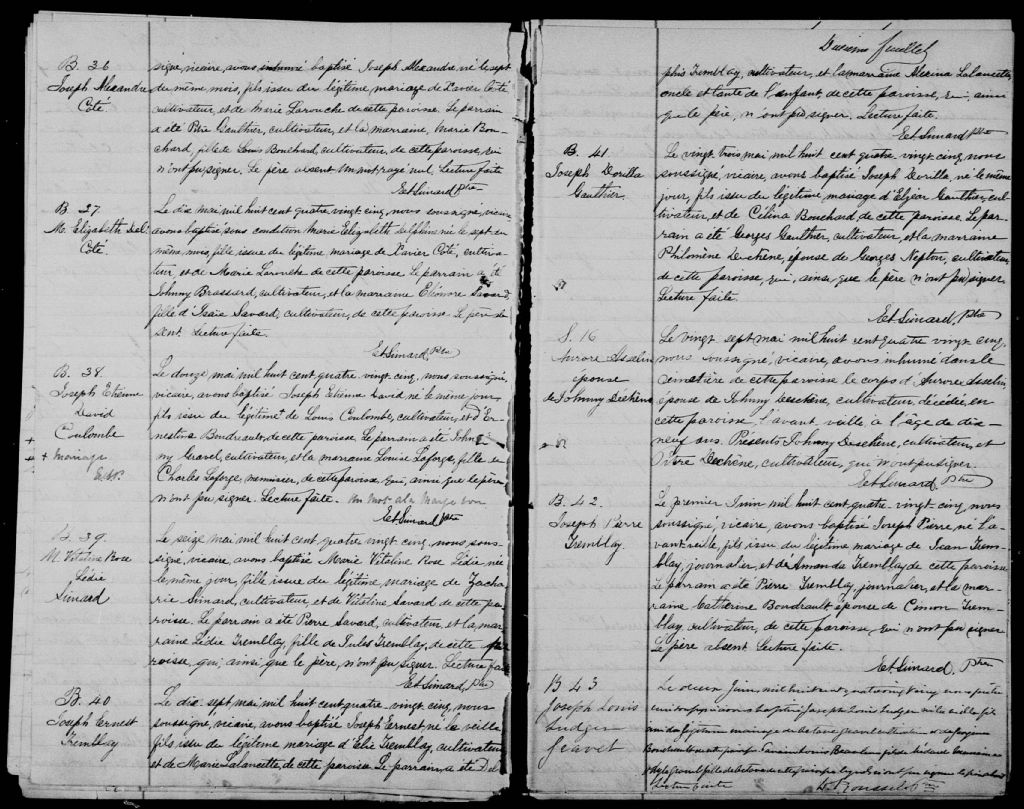 B. 36
Joseph Alexandre
Coté
signé, vicaire, avons baptisé Joseph Alexandre, né le sept
du même mois, fils issu du légitime mariage de Xavier Coté
cultivateur, et de Marie Larouche de cette paroisse. Le parrain
a été Gauthier, cultivateur, et la marraine, Marie Bou-
chard, fille de Louis Bouchard, cultivateur, de cette paroisse, qui
n'ont pu signer. Le père absent Un mot rayé nul. Lecture faite
Et Simard Ptre
B. 37
M. Elizabeth Del
Coté.
Le dix mai mil huit cent quatre vingt cinq, nous soussigné, vicaire
avons baptisé sous condition Marie Elizabeth Delphine née le sept du
même mois, fille issue du légitime mariage de Xavier Coté, cultiva-
teur, et de Marie Larouche de cette paroisse. Le parrain a été
Johnny Brassard, cultivateur, et la marraine Eléonore Savard
fille d'Isaïe Savard, cultivateur, de cette paroisse. Le père ab-
sent. Lecture faite.
Et Simard, Ptre
B. 38.
Joseph Etienne
David
Coulombe
+ mariage
Le douze mai mil huit cent quatre vingt cinq, nous, soussigné,
vicaire, avons baptisé Joseph Etienne David né le même jour
fils issu du légitime + de Louis Coulombe, cultivateur, et d'Er-
nestine Boudreault, de cette paroisse. Le parrain a été John-
ny Gravel, cultivateur, et la marraine Louise Laforge, fille de
Charles Laforge, menuisier, de cette paroisse qui, ainsi que le père
n'ont pu signer. Lecture faite. Un mot à la marge bon
Et Simard Ptre
B. 39.
M. Vitaline Rose
Lédie
Simard
Le seize mai mil huit cent quatre vingt cinq, nous sous-
signé, vicaire avons baptisé Marie Vitaline Rose Lédie née
le même jour, fille issue du légitime mariage de Zacha-
rie Simard, cultivateur, et de Vitaline Savard de cette pa-
roisse. Le parrain a été Pierre Savard, cultivateur et la mar-
raine Lédie Tremblay, fille de Jules Tremblay, de cette pa-
roisse, qui, ainsi que le père, n'ont pu signer. Lecture faite
Et Simard, Ptre
B. 40
Joseph Ernest
Tremblay
Le dix sept mai mil huit cent quatre vingt cinq, nous
soussigné, vicaire, avons baptisé Joseph Ernest né la veille
fils issu du légitime mariage d'Elie Tremblay, cultivateur
et de Marie Lalancette, de cette paroisse. Le parrain, a été Del
feuillet
phis Tremblay, cultivateur, et la marraine Alexina Lalancette,
oncle et tante de l'enfant, de cette paroisse, qui, ainsi
que le père, n'ont pu signer. Lecture faite.
Et Simard Ptre
B. 41
Joseph Dorilla
Gauthier.
Le vingt trois mai mil huit cent quatre vingt cinq, nous
soussigné, vicaire, avons baptisé Joseph Dorilla, né le même
jour, fils issu du légitime mariage d'Elzéar Gauthier, cul-
tivateur, et de Célina Bouchard de cette paroisse. Le par-
rain a été Georges Gauthier, cultivateur, et la marraine
Philomène Dechène, épouse de Georges Nepton, cultivateur
de cette paroisse, qui, ainsi, que le père n'ont pu signer
Lecture faite.
Et Simard, Ptre
S. 16
Aurore Asselin
épouse
de Johnny Dechène
Le vingt sept mai mil huit cent quatre vingt cinq,
nous soussigné, vicaire, avons inhumé dans le
cimetière de cette paroisse le corps d'Aurore Asselin,
épouse de Johnny Deschène, cultivateur, décédée, en
cette paroisse, l'avant veille, à l'âge de dix-
neuf ans. Présents Johnny Deschène, cultivateur, et
Pitre Dechène, cultivateur, qui n'ont pu signer.
Et Simard, Ptre
B. 42.
Joseph Pierre
Tremblay.
Le premier Juin mil huit cent quatre vingt cinq, nous
soussigné, vicaire, avons baptisé Joseph Pierre, né l'a-
vant veille, fils issu du légitime mariage de Jean Trem-
blay, journalier, et de Amanda Tremblay de cette paroisse
Le parrain a été Pierre Tremblay, journalier, et la mar-
raine Catherine Boudreault épouse de Cimon Trem-
blay, cultivateur, de cette paroisse qui n'ont pu signer
Le père absent. Lecture faite.
Et Simard, Ptre
B 43
Joseph Louis
Ludger
Gravel
Le deux Juin, mil huit cent quatre vingt cinq
avons baptisé Joseph Louis Ludger né la veille fils
mariage de
fille de
Lecture faite